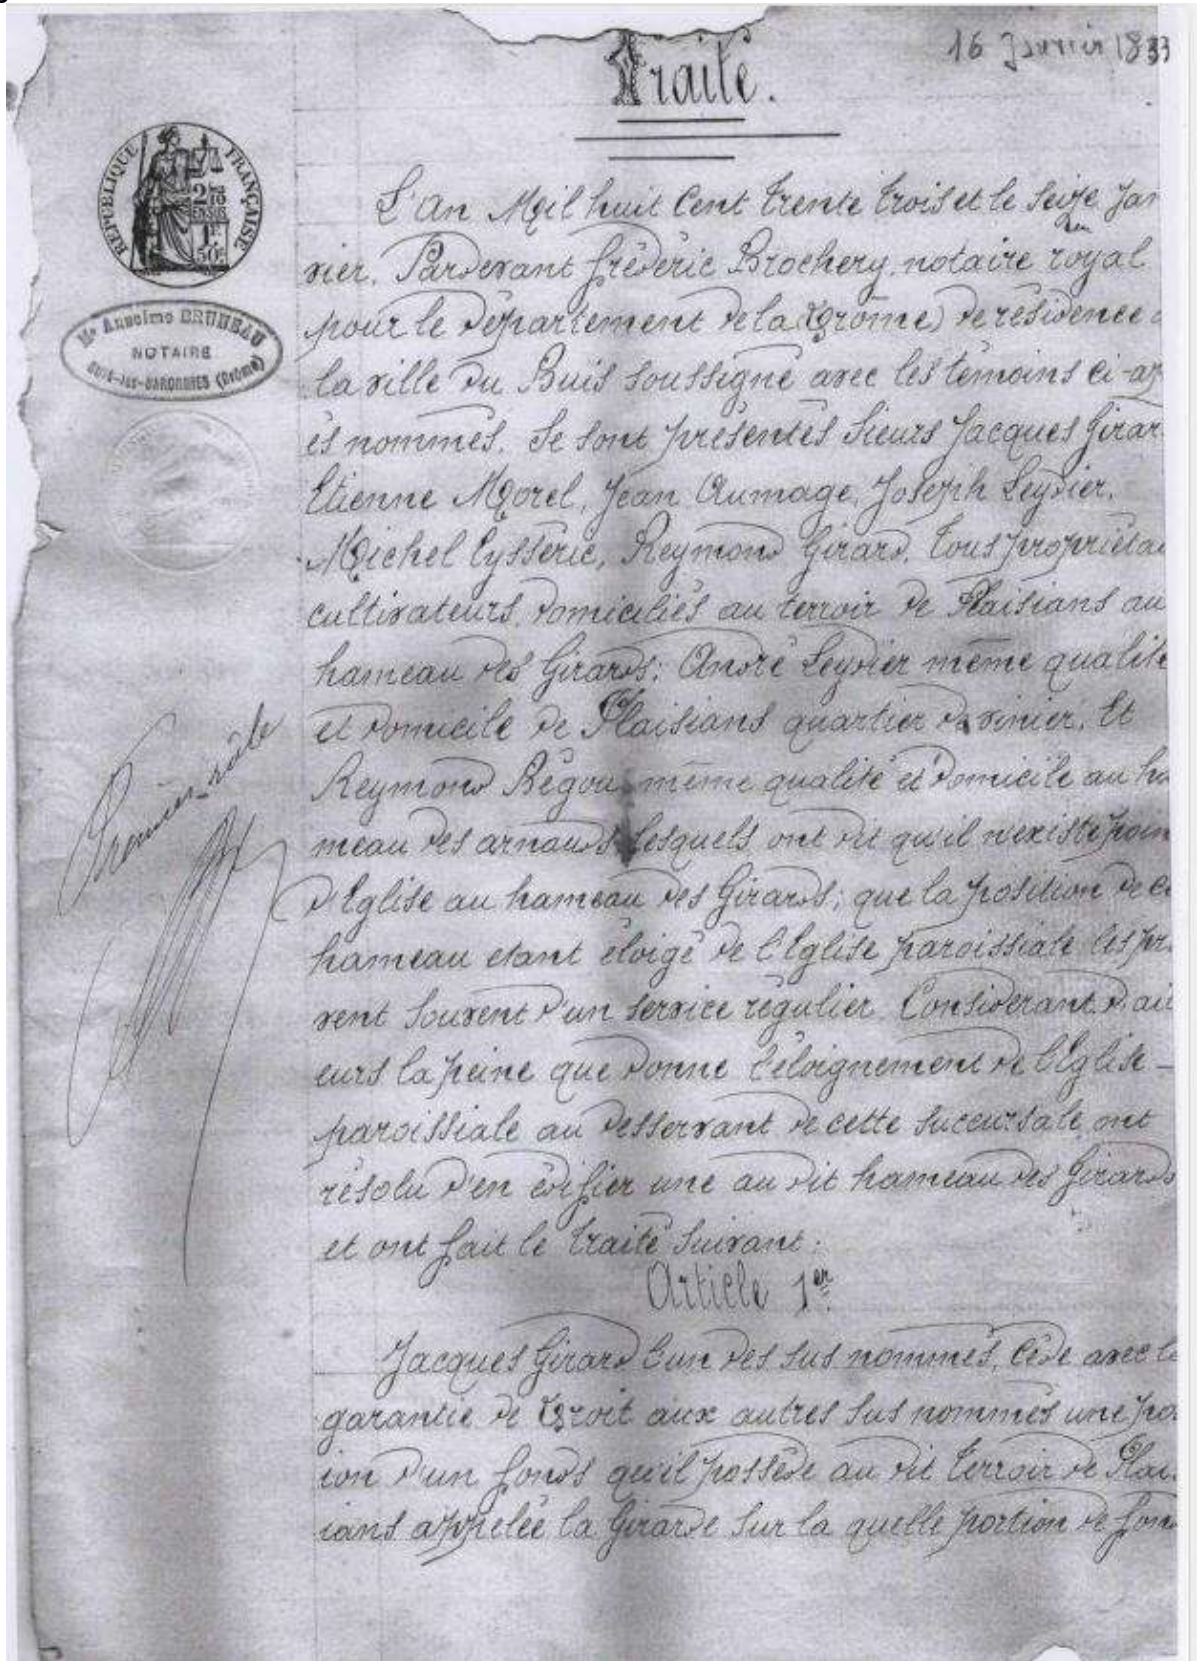 16 Janvier 1833
Traité.
RÉPUBLIQUE FRANÇAISE
2/10
EN SUS
1F
50c
Me Anselme BRUNEAU
NOTAIRE
BUIS-les-BARONNIES (Drôme)
L'an Mil huit Cent trente trois et le Seize Jan
vier. Pardevant frédéric Brochery, notaire royal
pour le département de la (Drôme) de résidence
la ville du Buis soussigné avec les témoins ci-ap
és nommés. Se sont présentés Sieurs Jacques Girar
Etienne Morel, Jean Aumage, Joseph Leydier,
Michel Eysséric, Reymond Girard, tous propriétai
cultivateurs, domiciliés au terroir de Plaisians au
hameau des Girards; André Leydier même qualité
et domicile de Plaisians quartier du vinier, Et
Reymond Bégou même qualité et domicile au ha
meau des arnauds lesquels ont dit qu'il n'existe poin
d'Eglise au hameau des Girards; que la position de ce
hameau etant éloigé de l'Eglise paroissiale les pri
vent souvent d'un service régulier. Considerant d'aill
eurs la peine que donne l'éloignement de l'Eglise -
paroissiale au desservant de cette succursale, ont
résolu d'en édifier une au dit hameau des Girards
et ont fait le traité suivant:
Premier rôle
Article 1er
Jacques Girard l'un des sus nommés, cède avec la
garantie de Droit aux autres sus nommés une po
ion d'un fonds qu'il possède au dit terroir de Plai
ians appelée la Girarde sur la quelle portion de fon